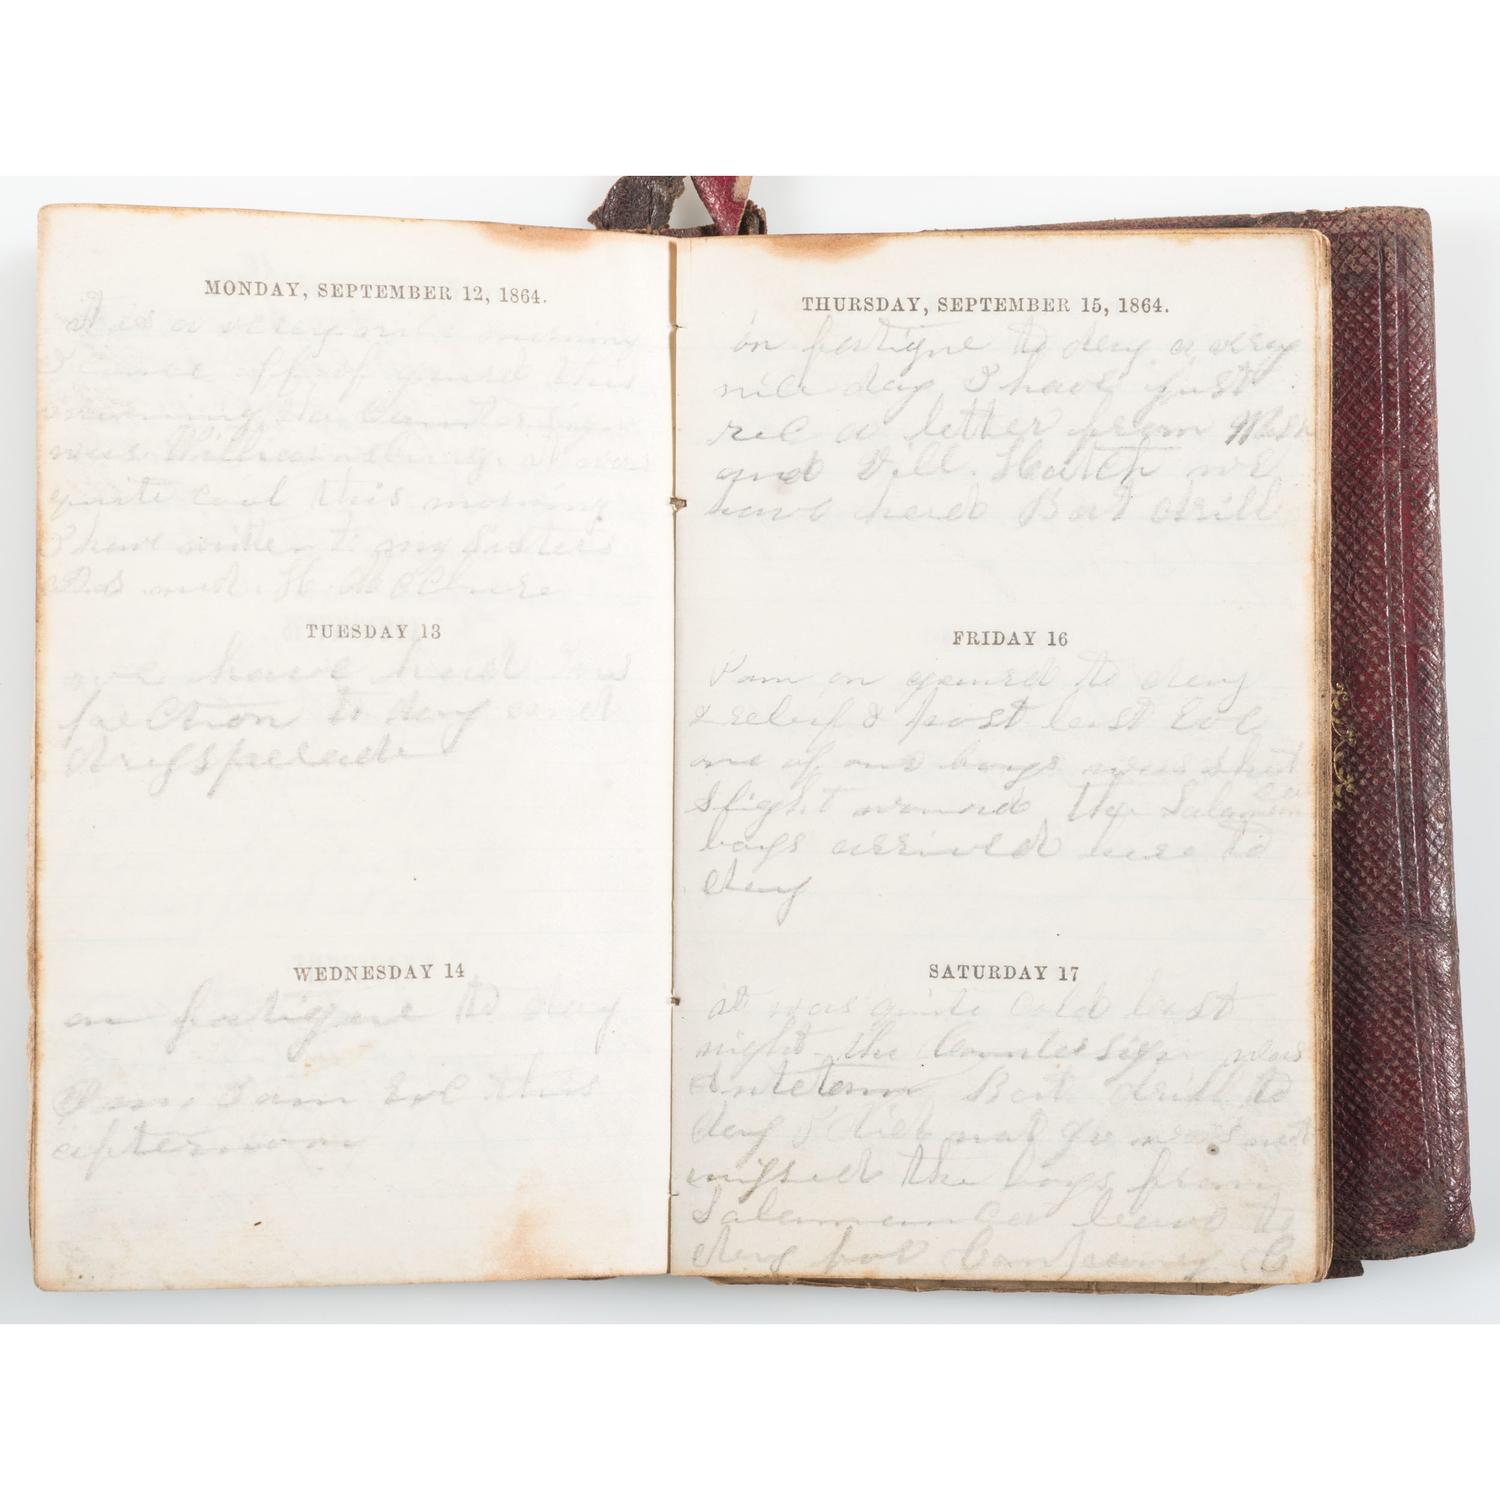 MONDAY, SEPTEMBER 12, 1864.
it is a very nice morning
I came off of guard this
morning the Countersign
was Williamsburg. it was
quite cool this morning
I have writen to my Sisters
and H. McClure
TUESDAY 13
we have had Ins
pection to day and
dress perade
WEDNESDAY 14
on fatigue to day
P.m. I am
afternoon
THURSDAY, SEPTEMBER 15, 1864.
on fatigue to day a very
nice day I have just
rec a letter from
and Will. Hatch we
have had Bat drill
FRIDAY 16
I am on guard to day
2 relief & post last Eve
one of our boys was shot
slight wound the Salamanca
boys arrived here to
day
SATURDAY 17
it was quite cold last
night the Countersign was
Antetam Bat drill to
day I did not go was not
the boys from
Salamanca leave to
day for Company C